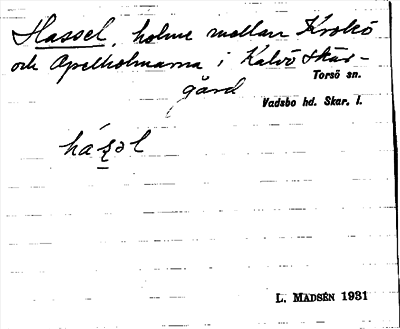 Hassel, holme mellan Krokö
och Apelholmarna i Kalvö skär-
Torsö sn.
gård
Vadsbo hd. Skar. l.
L. MADSÉN 1931